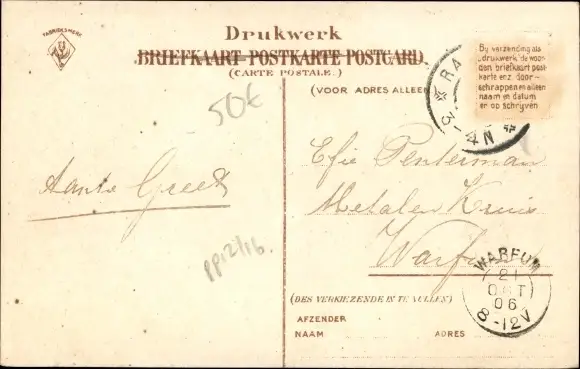 FABRIEKSMERK
Drukwerk
BRIEFKAART-POSTKARTE-POSTCARD.
(CARTE POSTALE.)
(VOOR ADRES ALLEEN
Bij verzending als
„drukwerk” de woor-
den briefkaart post-
karte enz. door-
schrappen en alleen
naam en datum
er op schrijven
RA
3-4N
50€
Tante Greet
pp12/16.
Efie Penterman
Metalen Kruis
Warfum
WARFUM
21
OCT
06
8-12V
(DES VERKIEZENDE IN TE VULLEN)
AFZENDER
NAAM ADRES